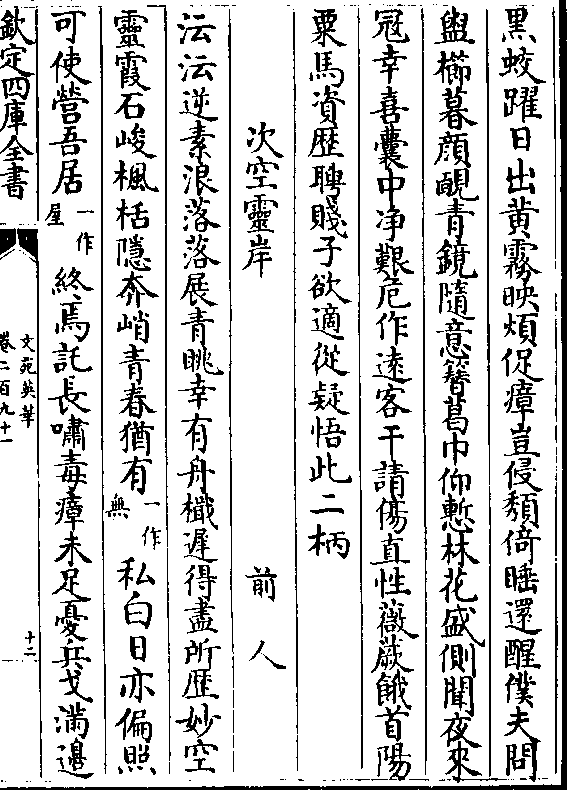 黒蛟躍日出黄霧映煩促瘴豈侵頽倚睡還醒僕夫問
盥櫛暮顔靦青鏡隨意簪葛巾仰慙林花盛側聞夜來
冠幸喜囊中浄艱危作逺客干請傷直性薇蕨餓首陽
粟馬資歴聘賤子欲適從疑悟此二柄
次空靈岸 前人
沄沄逆素浪落落展青眺幸有舟檝遲得盡所歴妙空
靈霞石峻楓栝隱奔峭青春猶有一作無私白日亦偏照
可使營吾居一作屋終焉託長嘯毒瘴未足憂兵戈滿邉
欽定四庫全書
文苑英華
卷二百九十一
十二